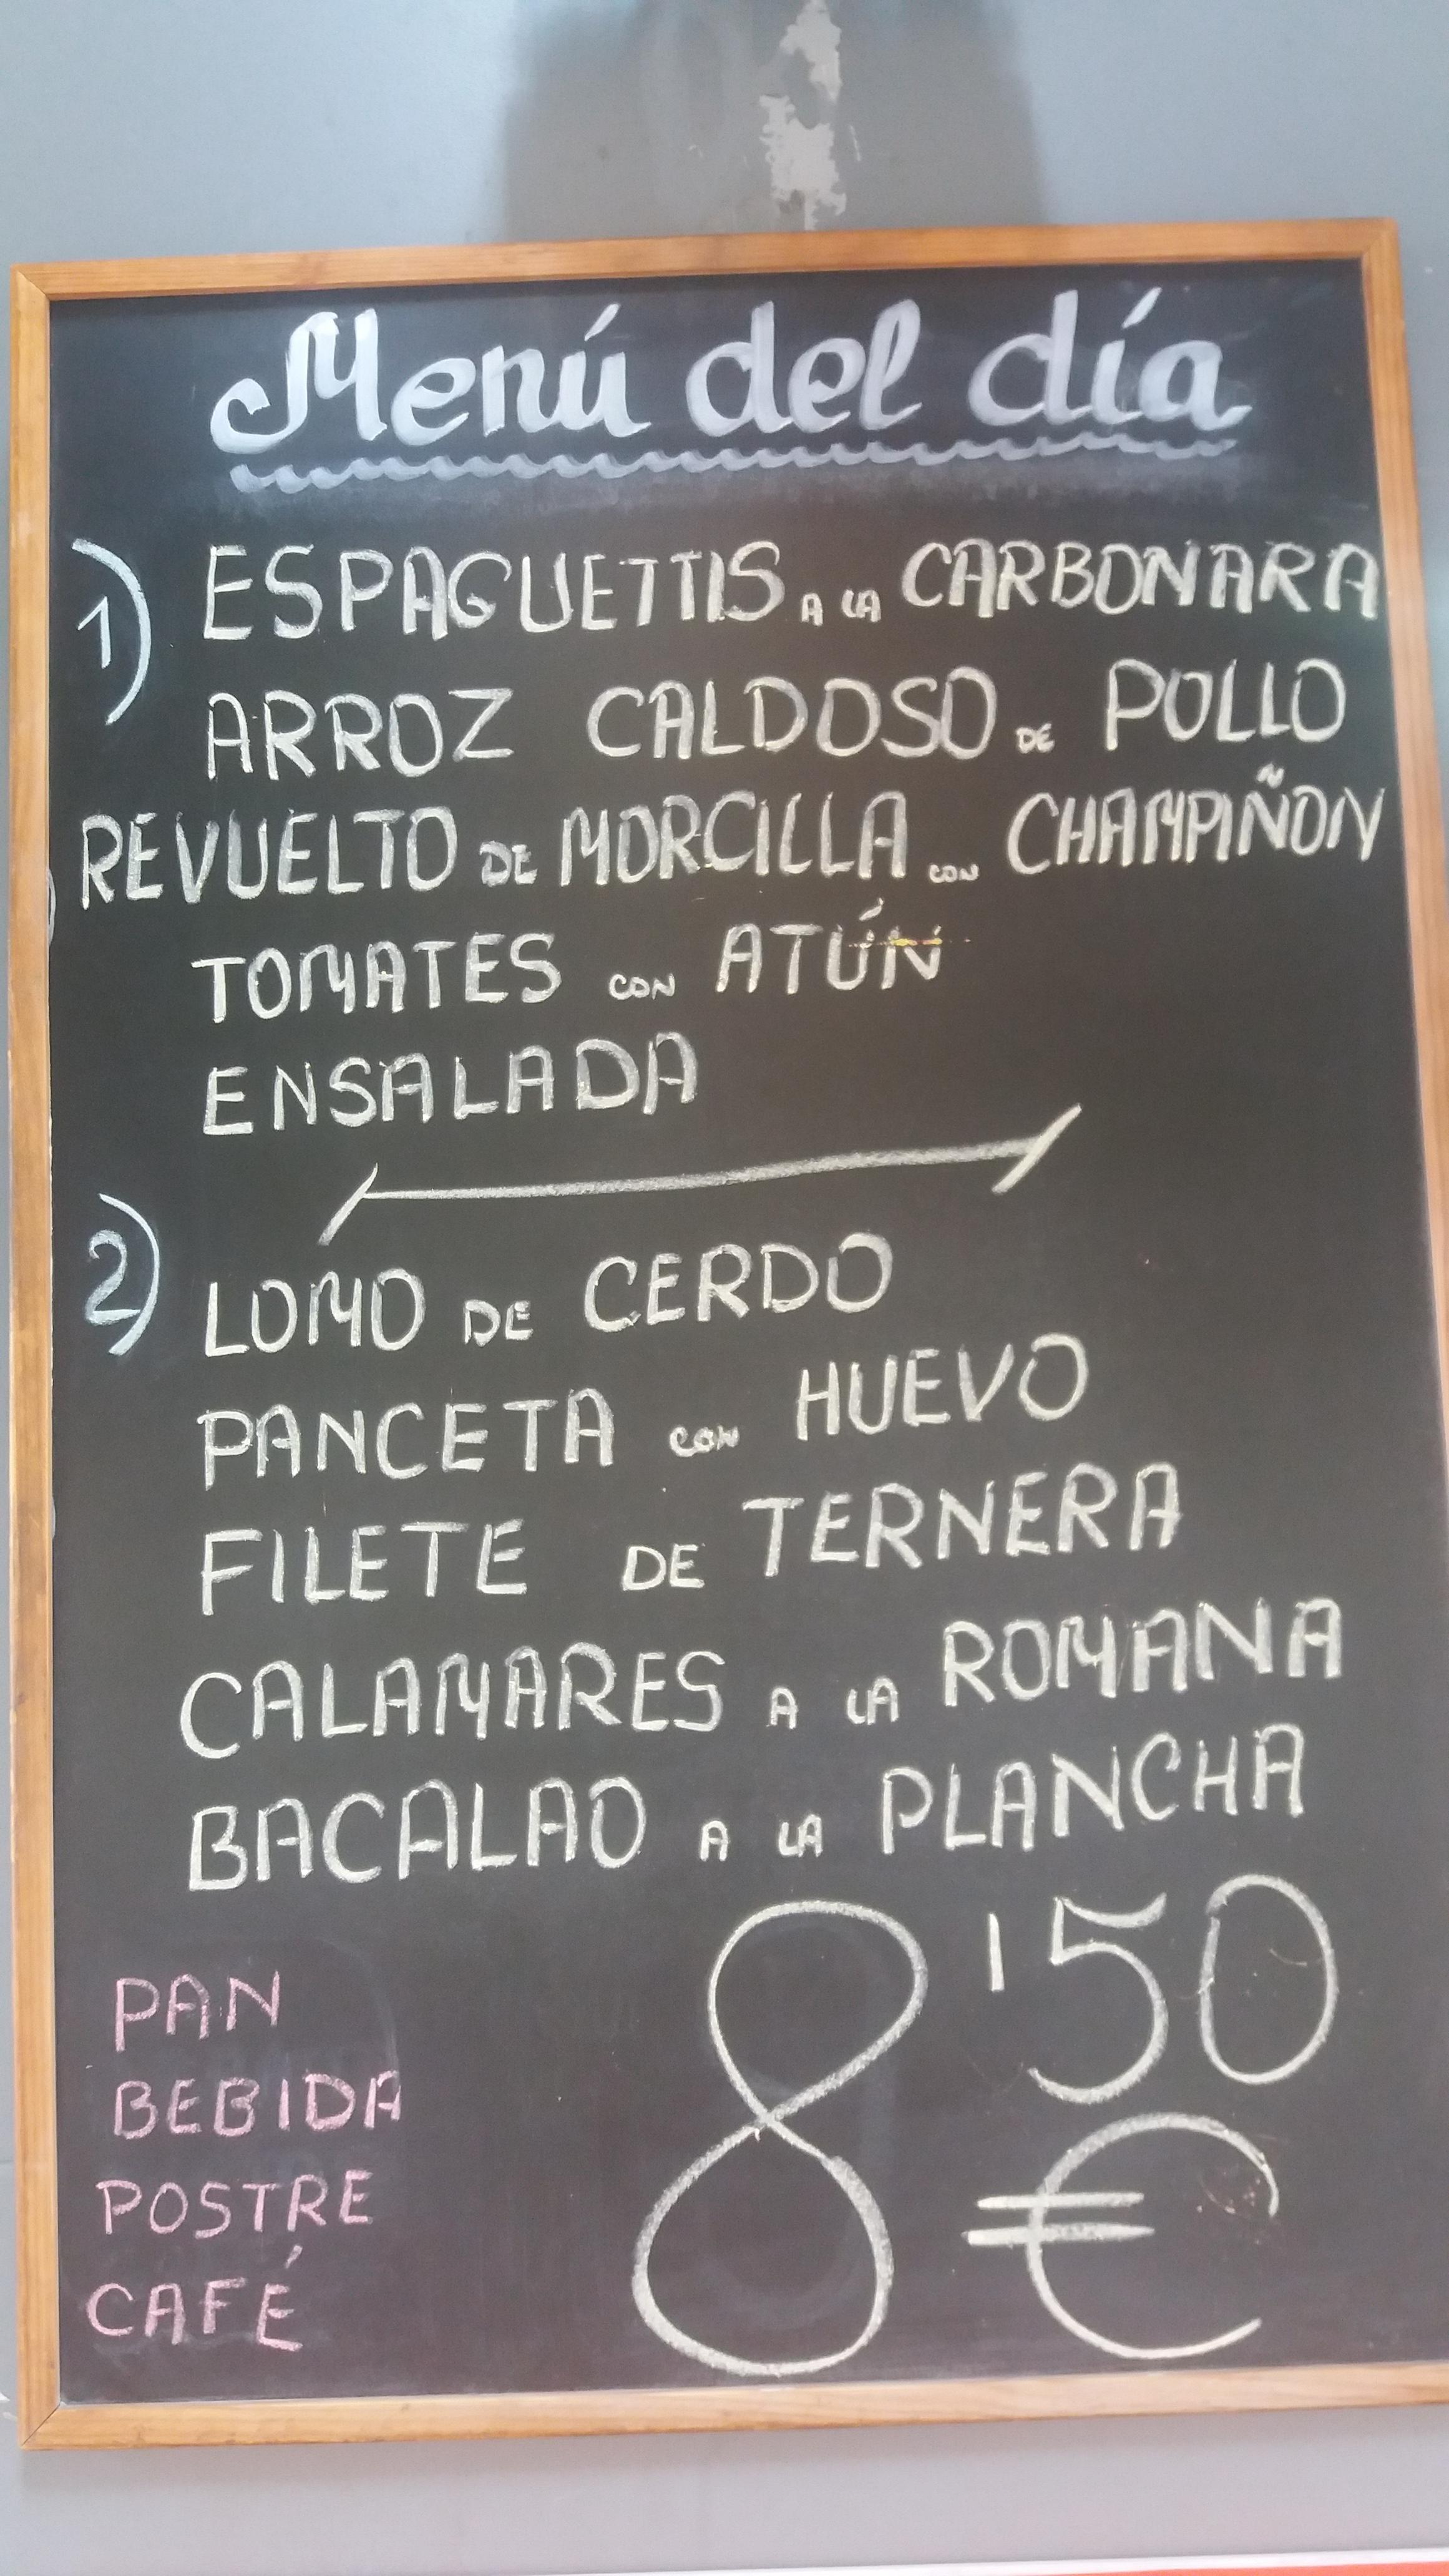 Menú del día
1) ESPAGUETTIS A LA CARBONARA
ARROZ CALDOSO DE POLLO
REVUELTO DE MORCILLA CON CHAMPIÑON
TOMATES CON ATÚN
ENSALADA
2) LOMO DE CERDO
PANCETA CON HUEVO
FILETE DE TERNERA
CALAMARES A LA ROMANA
BACALAO A LA PLANCHA
8'50 €
PAN
BEBIDA
POSTRE
CAFÉ